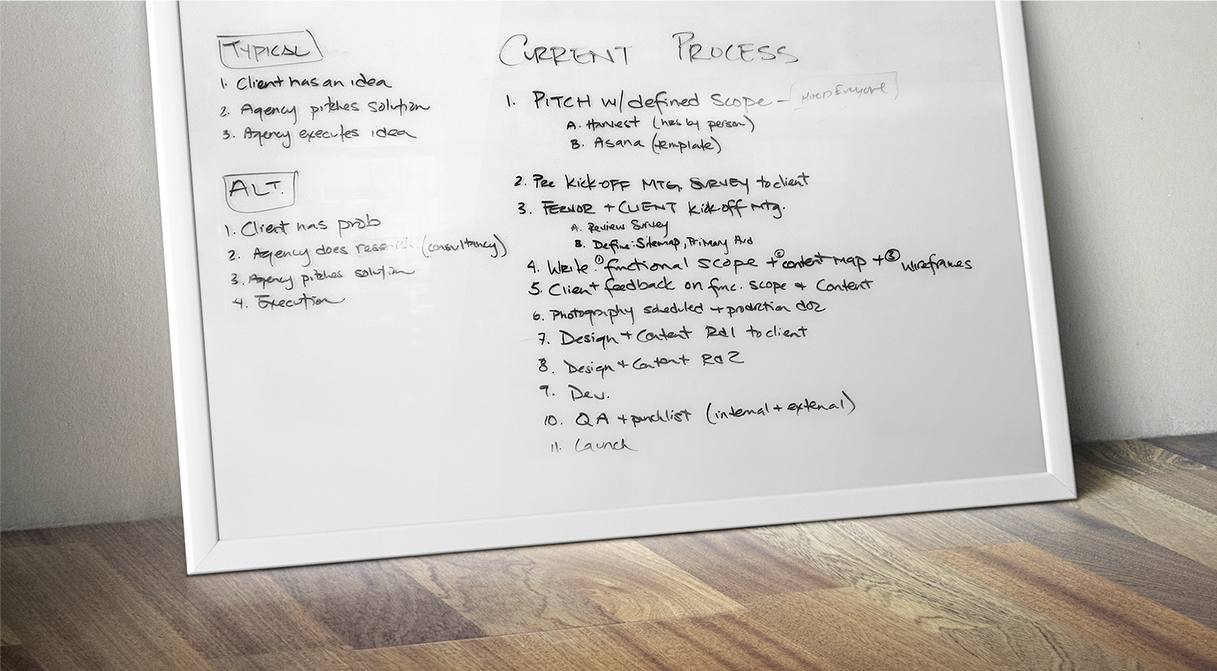 TYPICAL
1. Client has an idea
2. Agency pitches solution
3. Agency executes idea
ALT.
1. Client has prob
2. Agency does research (consultancy)
3. Agency pitches solution
4. Execution
CURRENT PROCESS
1. PITCH w/defined scope -
A. Harvest (hrs by person)
B. Asana (template)
2. Pre KICK-OFF MTG. SURVEY to client
3. FERVOR + CLIENT kick-off mtg.
A. Review Survey
B. Define: Sitemap, Primary Aud
4. Write ① functional scope + ② content map + ③ wireframes
5. Client feedback on func. scope + Content
6. Photography scheduled + production
7. Design + Content Rd1 to client
8. Design + Content Rd 2
9. Dev.
10. QA + punchlist (internal + external)
11. Launch